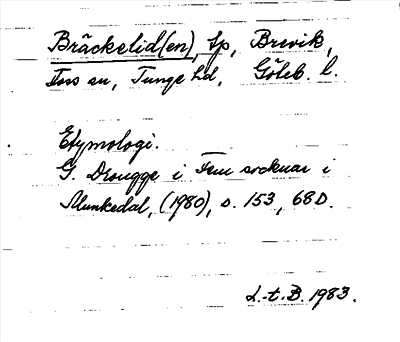 Bräckelid(en), Lp, Brevik,
Foss sn, Tunge hd, Göteb. l.
Etymologi.
G. Drougge i Fem socknar i
Munkedal, (1980), s. 153, 68D.
L.-t. B. 1983.